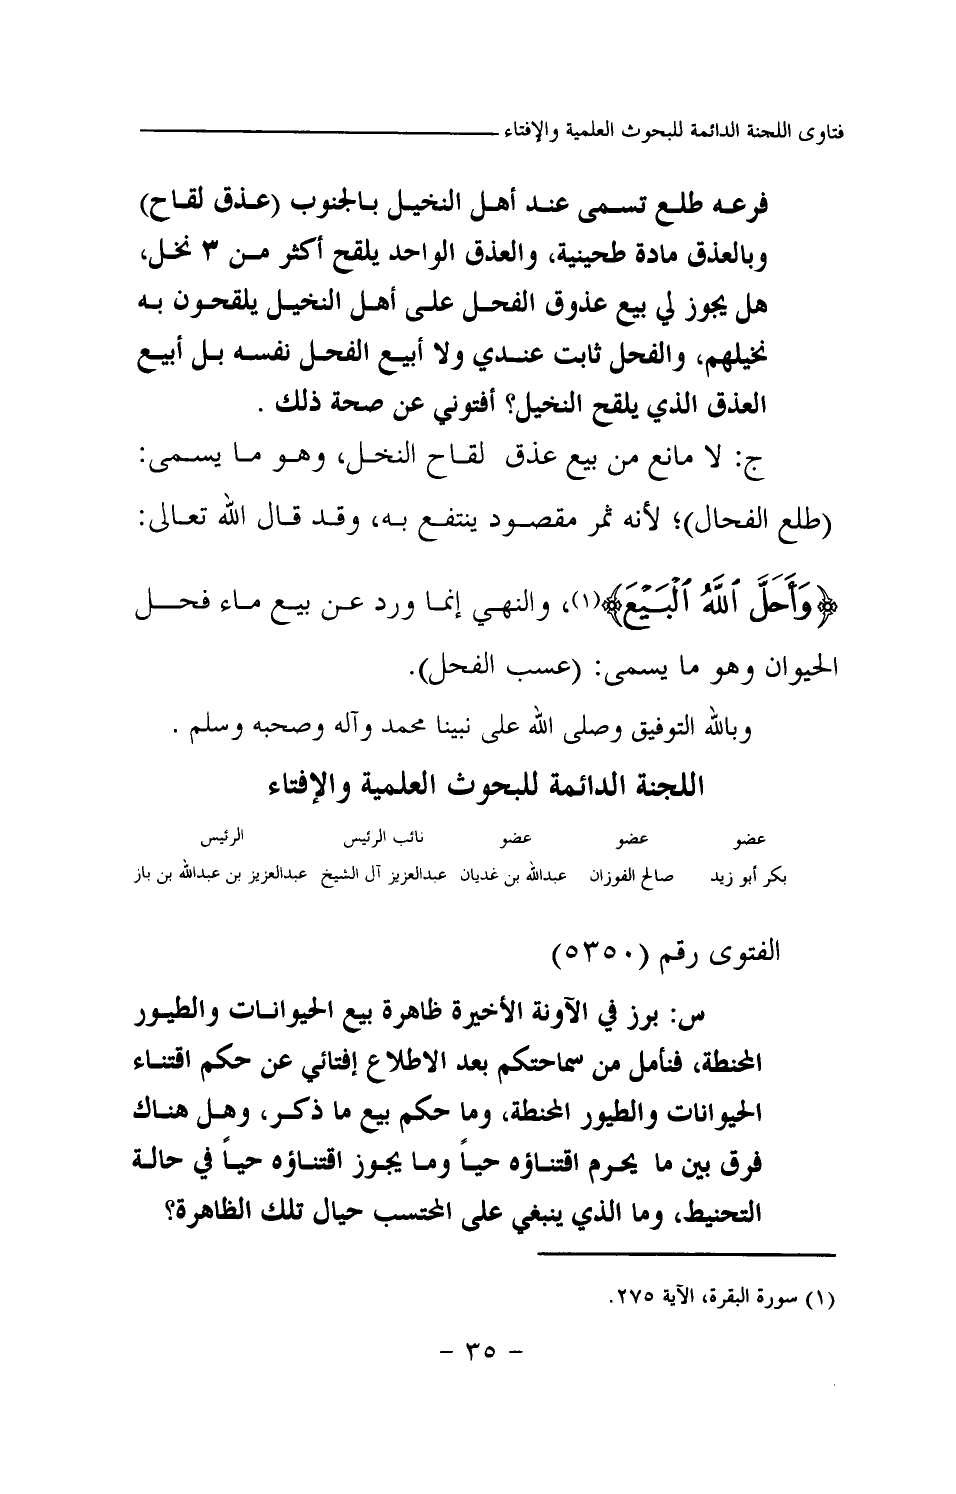 فتاوى اللجنة الدائمة للبحوث العلمية والإفتاء
فرعه طلع تسمى عند أهل النخيل بالجنوب (عذق لقاح)
وبالعذق مادة طحينية، والعذق الواحد يلقح أكثر من ٣ نخل،
هل يجوز لي بيع عذوق الفحل على أهل النخيل يلقحون به
نخيلهم، والفحل ثابت عندي ولا أبيع الفحل نفسه بل أبيع
العذق الذي يلقح النخيل؟ أفتوني عن صحة ذلك .
ج: لا مانع من بيع عذق لقاح النخل، وهو ما يسمى:
(طلع الفحال)؛ لأنه ثمر مقصود ينتفع به، وقد قال الله تعالى:
﴿وَأَحَلَّ ٱللَّهُ ٱلْبَيْعَ﴾(١)، والنهي إنما ورد عن بيع ماء فحل
الحيوان وهو ما يسمى: (عسب الفحل).
وبالله التوفيق وصلى الله على نبينا محمد وآله وصحبه وسلم .
اللجنة الدائمة للبحوث العلمية والإفتاء
عضو عضو عضو نائب الرئيس الرئيس
بكر أبو زيد صالح الفوزان عبدالله بن غديان عبدالعزيز آل الشيخ عبدالعزيز بن عبدالله بن باز
الفتوى رقم (٥٣٥٠)
س: برز في الآونة الأخيرة ظاهرة بيع الحيوانات والطيور
المحنطة، فنأمل من سماحتكم بعد الاطلاع إفتائي عن حكم اقتناء
الحيوانات والطيور المحنطة، وما حكم بيع ما ذكر، وهل هناك
فرق بين ما يحرم اقتناؤه حياً وما يجوز اقتناؤه حياً في حالة
التحنيط، وما الذي ينبغي على المحتسب حيال تلك الظاهرة؟
(١) سورة البقرة، الآية ٢٧٥.
- ٣٥ -